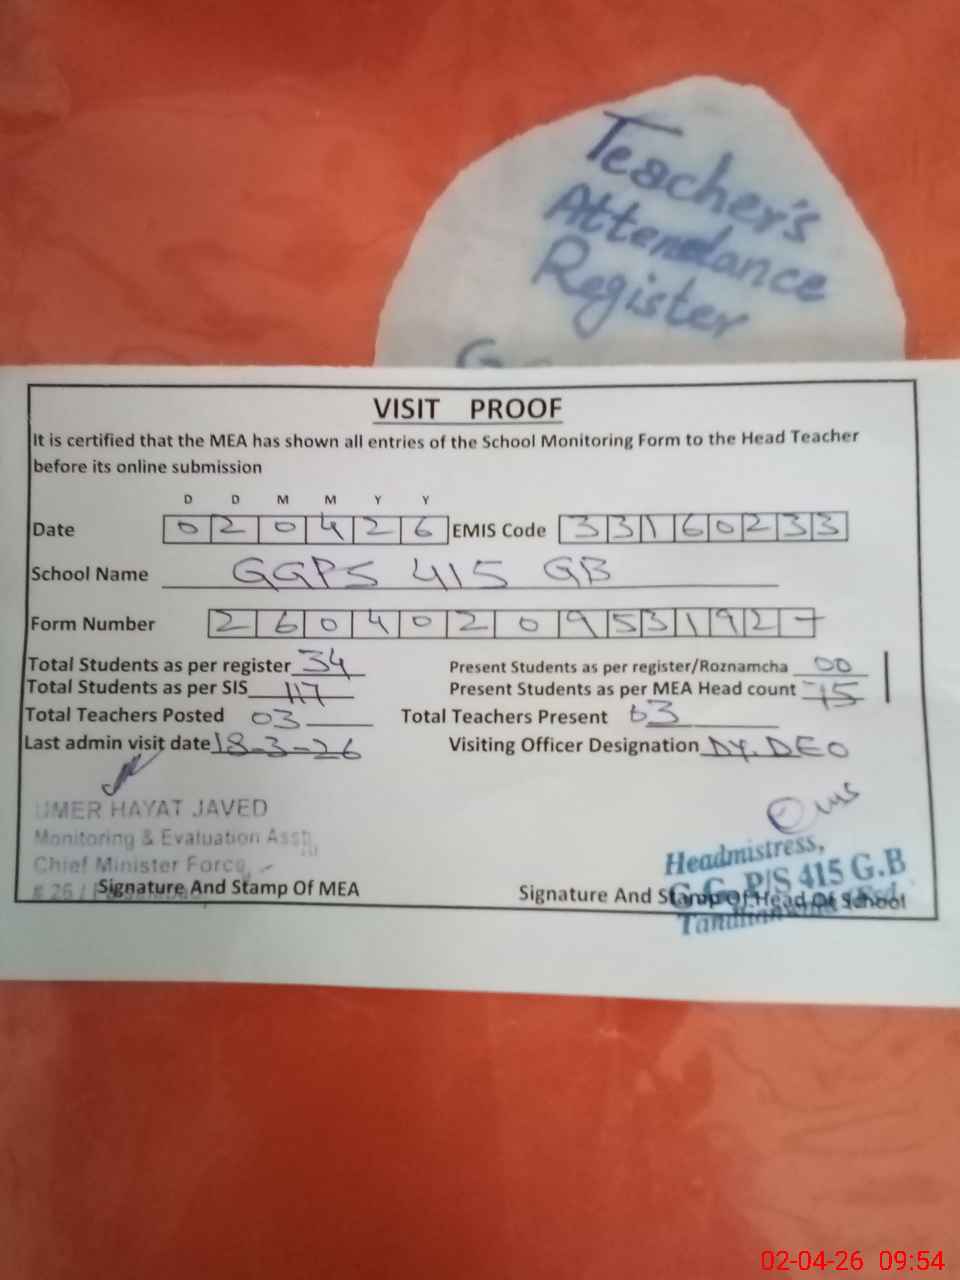 Teacher's
Attendance
Register
VISIT PROOF
It is certified that the MEA has shown all entries of the School Monitoring Form to the Head Teacher
before its online submission
D D M M Y Y
Date 0 2 0 4 2 6 EMIS Code 3 3 1 6 0 2 3 3
School Name GGPS 415 GB
Form Number 2 6 0 4 0 2 0 9 5 3 1 9 2
Total Students as per register 34 Present Students as per register/Roznamcha 00
Total Students as per SIS 117 Present Students as per MEA Head count 75
Total Teachers Posted 03 Total Teachers Present 03
Last admin visit date 18-3-26 Visiting Officer Designation DY. DEO
UMER HAYAT JAVED
Monitoring & Evaluation Asstt.
Chief Minister Force
Headmistress,
G.G. P/S 415 G.B
Signature And Stamp Of MEA Signature And Stamp Of Head Of School
02-04-26 09:54